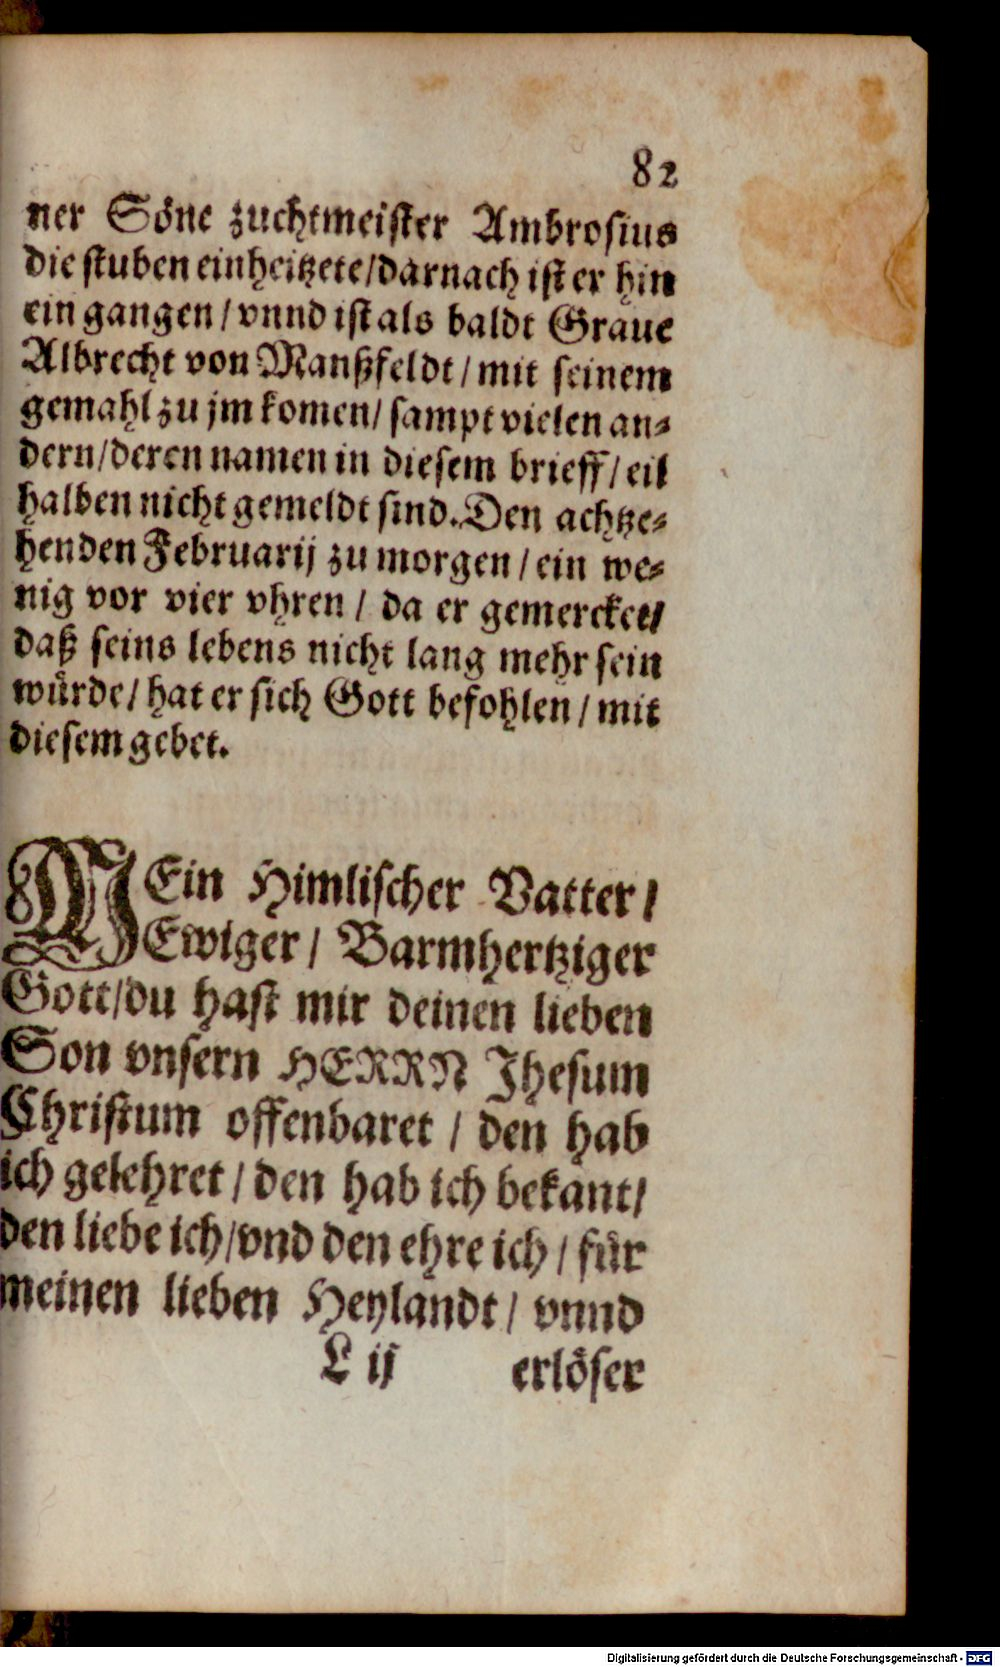 82
ner Söne zuchtmeister Ambrosius
die stuben einheitzete/darnach ist er hin
ein gangen/ vnnd ist als baldt Graue
Albrecht von Manßfeldt/ mit seinem
gemahl zu jm komen/ sampt vielen an-
dern/deren namen in diesem brieff/ eil
halben nicht gemeldt sind. Den achtze-
henden Februarij zu morgen/ ein we-
nig vor vier vhren/ da er gemercket/
daß seins lebens nicht lang mehr sein
würde/ hat er sich Gott befohlen/ mit
diesem gebet.
MEin Himlischer Vatter/
Ewiger/ Barmhertziger
Gott/du hast mir deinen lieben
Son vnsern HERRN Jhesum
Christum offenbaret/ den hab
ich gelehret/ den hab ich bekant/
den liebe ich/vnd den ehre ich/ für
meinen lieben Heylandt/ vnnd
L ij erlöser
Digitalisierung gefördert durch die Deutsche Forschungsgemeinschaft - DFG